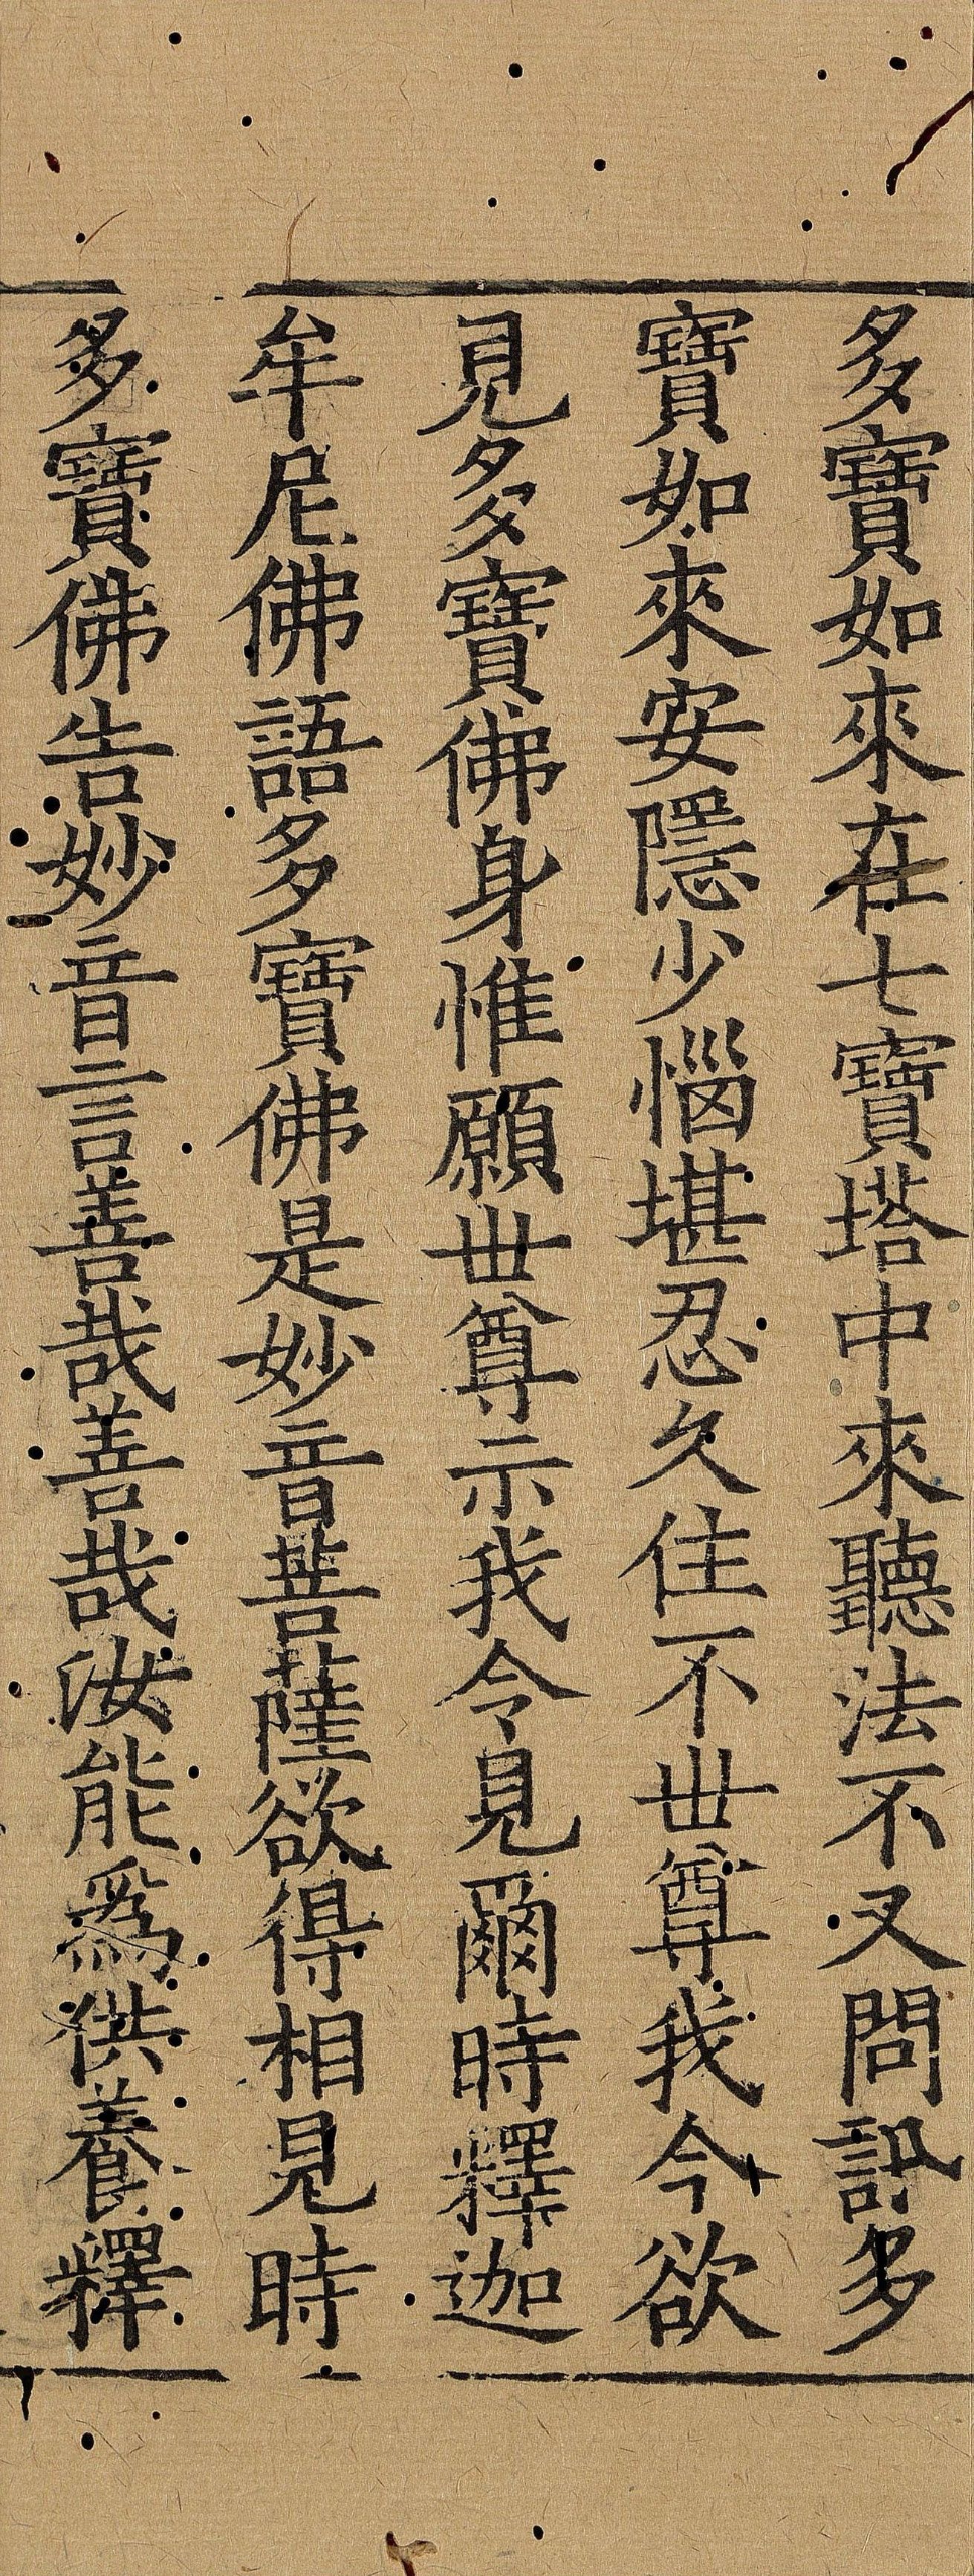 多寶如來在七寶塔中來聽法不又問訊多
寶如來安隱少惱堪忍久住不丗尊我今欲
見多寶佛身惟願丗尊示我令見爾時釋迦
牟尼佛語多寶佛是妙音菩薩欲得相見時
多寶佛告妙音言善哉善哉汝能爲供養釋